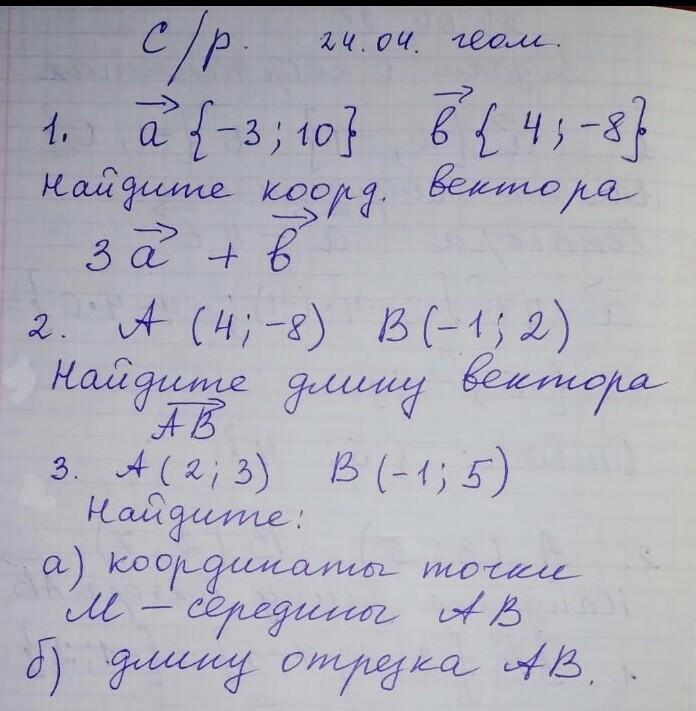 С/р. 24.04. геом.
1. a⃗ {-3; 10} b⃗ {4; -8}
Найдите коорд. вектора
3a⃗ + b⃗
2. A (4; -8) B (-1; 2)
Найдите длину вектора
A⃗B⃗
3. A (2; 3) B (-1; 5)
Найдите:
а) координаты точки
М — середины AB
б) длину отрезка AB.